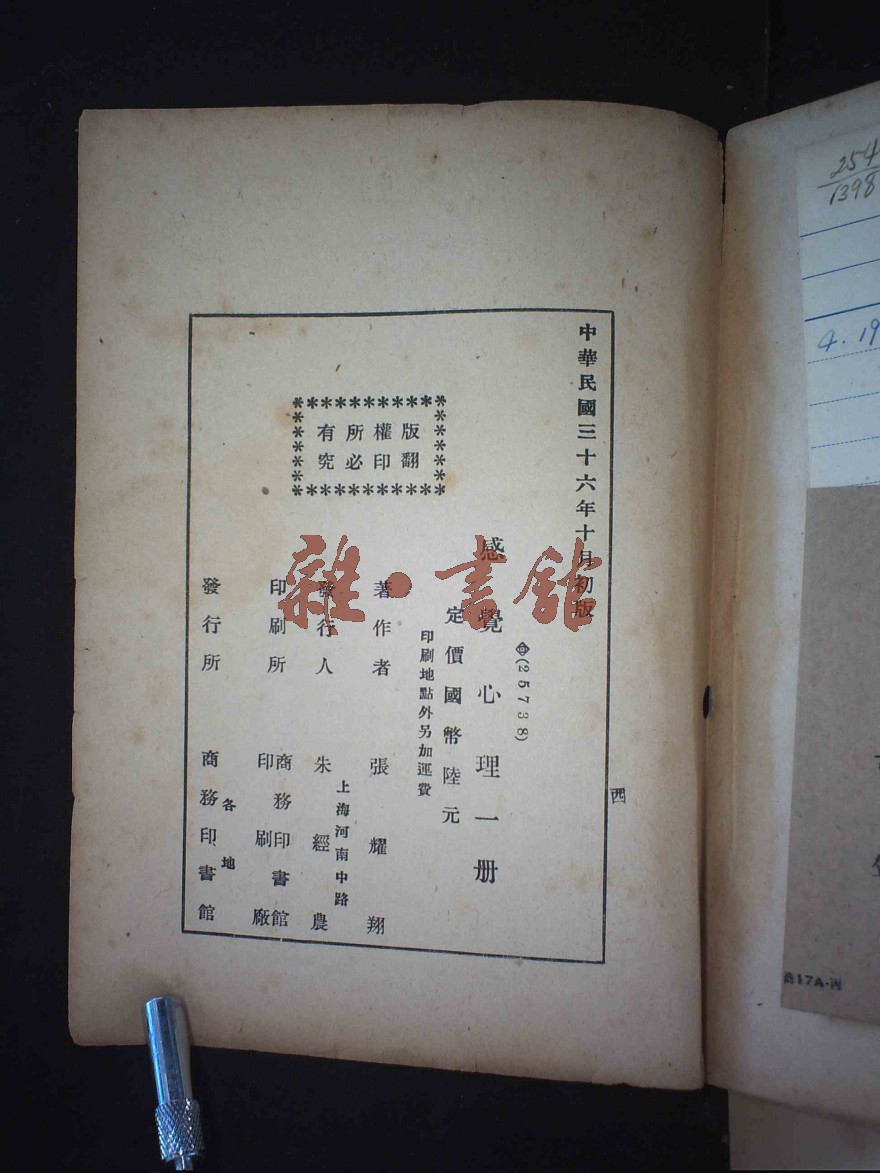 中華民國三十六年十月初版
(25738)
感覺心理一册
定價國幣陸元
印刷地點外另加運費
版權所有
翻印必究
著作者 張耀翔
上海河南中路
發行人 朱經農
印刷所 商務印書館
印刷廠
各地
發行所 商務印書館
西
雜·書館
254
1398
4.19
商17A·西